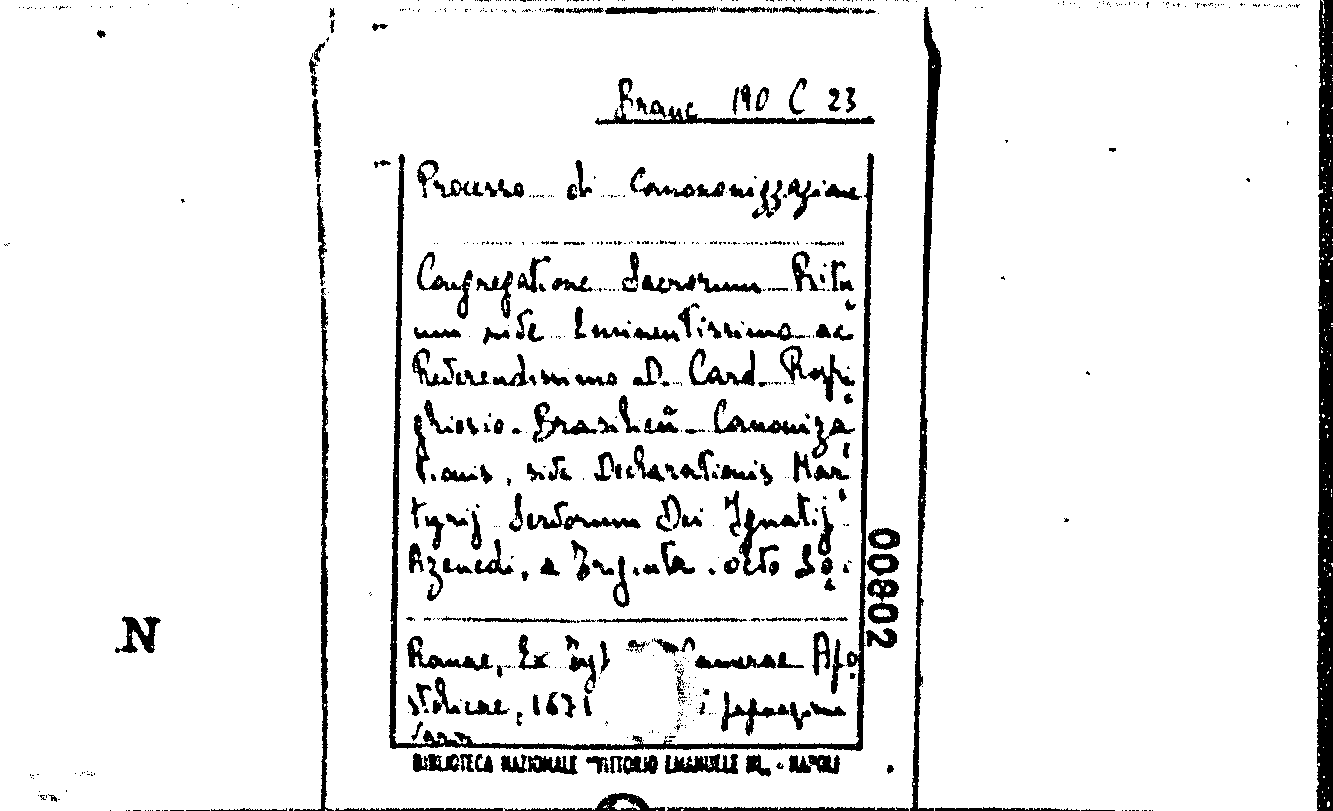 Branc 190 C 23
Processo di Canononizzazione
Congregatione Sacrorum Ritu
um sive Eminentissimo ac
Reverendissimo D. Card. Rospi
gliosio. Brasilieñ Canoniza
tionis, sive Declarationis Mar
tyrij Servorum Dei Ignatij
Azevedi, a Triginta octo So
Romae, Ex Typ Camerae Apo
stolicae, 1671 i pagnazima
varia
BIBLIOTECA NAZIONALE "VITTORIO EMANUELE III" - NAPOLI
00802
N